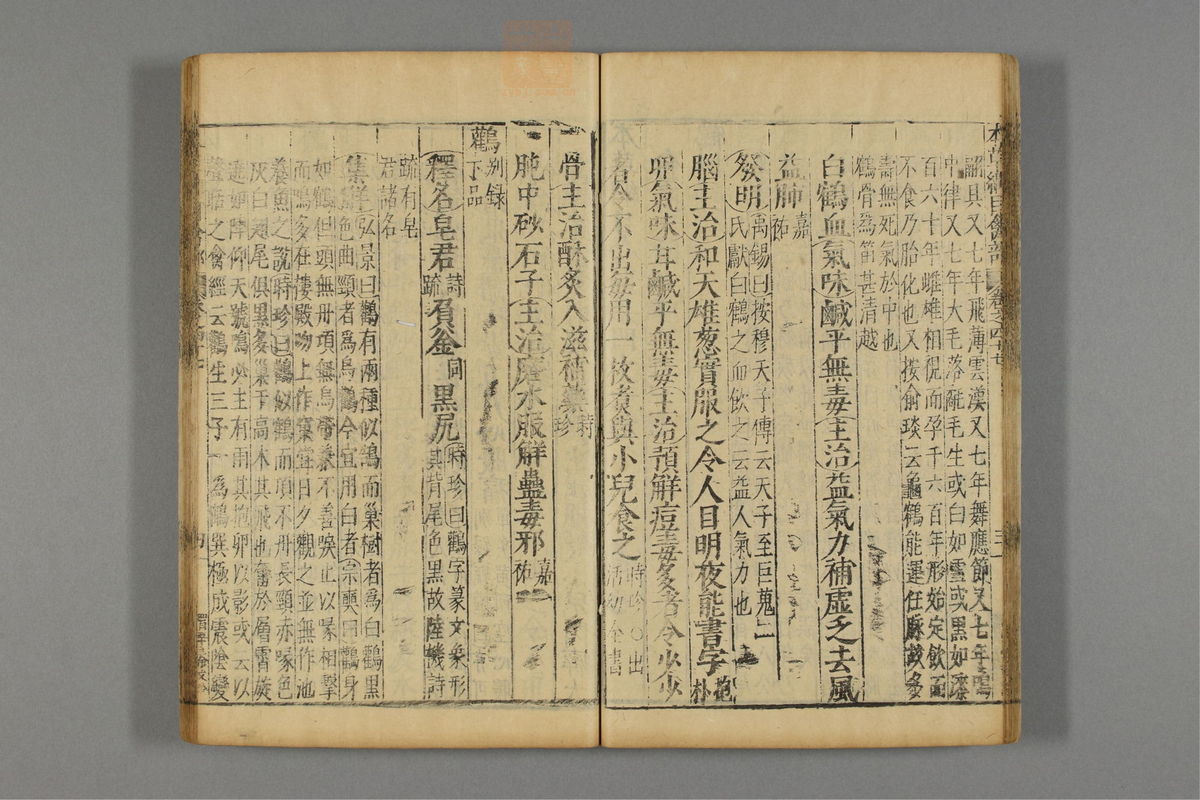 本草綱目禽部 卷之四十七
詔具又七年飛薄雲漢又七年舞應節又七年鳴
中律又七年大毛落氄毛生或白如雪或黑如漆
百六十年雌雄相視而孕千六百年形始定飲而
不食乃胎化也又按俞琰云龜鶴能運任脉故多
壽無死氣於中也
鶴骨爲笛甚清越
白鶴血氣味鹹平無毒主治益氣力補虛乏去風
益肺嘉祐
發明禹錫曰按穆天子傳云天子至巨蒐二
氏獻白鶴之血飲之云益人氣力也
腦主治和天雄葱實服之令人目明夜能書字抱朴
卵氣味甘鹹平無毒主治預解痘毒多者令少少
者令不出每用一枚煮與小兒食之時珍○出
活幼全書
骨主治酥炙入滋補藥時珍
肫中砂石子主治磨水服解蠱毒邪嘉祐
鸛別錄
下品
釋名皂君詩疏負釜同黑尻時珍曰鸛字篆文象形
其背尾色黑故陸機詩
疏有皂
君諸名
集解弘景曰鸛有兩種似鵠而巢樹者爲白鸛黑
色曲頸者爲烏鸛今宜用白者宗奭曰鸛身
如鶴但頭無丹項無烏帶兼不善唳止以喙相擊
而鳴多在樓殿吻上作窠嘗日夕觀之並無作池
養魚之說時珍曰鸛似鶴而頂不丹長頸赤喙色
灰白翅尾俱黑多巢于高木其飛也奮於層霄旋
遶如陣仰天號鳴必主有雨其抱卵以影或云以
聲聒之禽經云鸛生三子一爲鶴巽極成震陰變